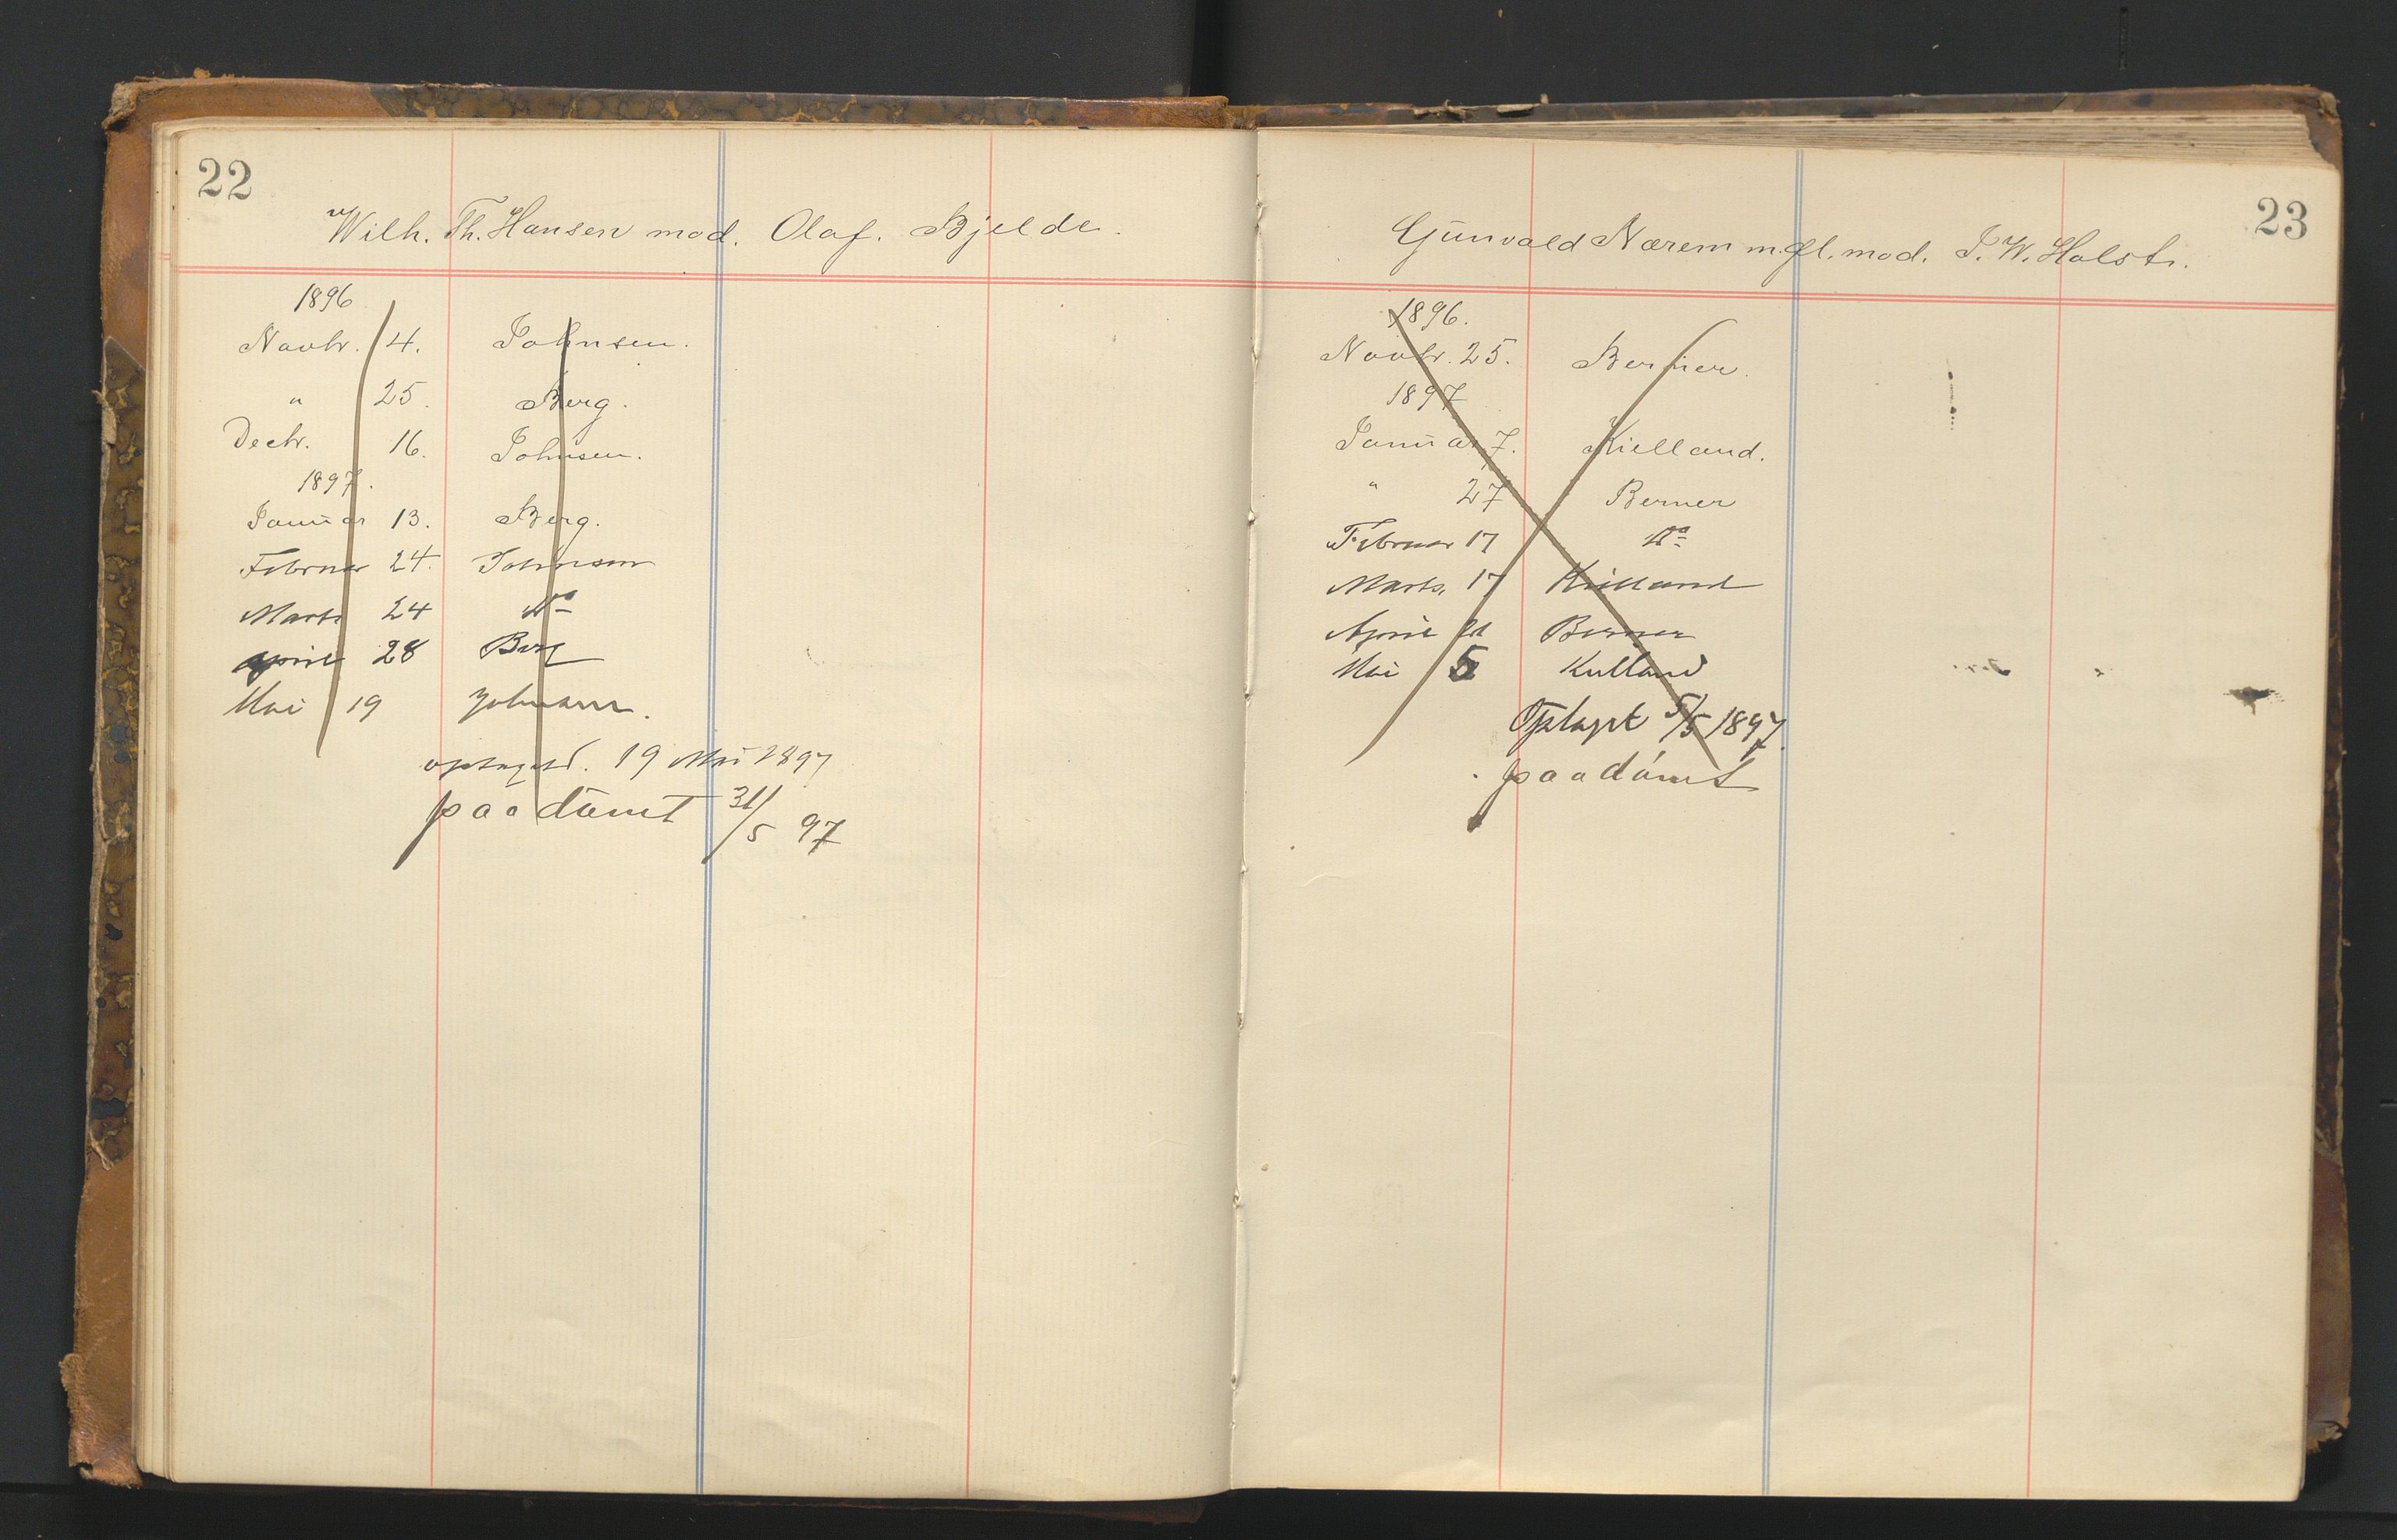 22
Wilh. Th. Hansen mod. Olaf. Bjelde.
1896
Novbr. 4. Johnsen.
" 25. Berg.
Decbr. 16. Johnsen.
1897.
Januar 13. Berg.
Februar 24. Johnsen
Marts 24 Do
April 28 Berg
Mai 19 Johnsen.
optaget. 19 Mai 1897
paadømt 31/5 97
23
Gunvald Nærem m.fl. mod. J. W. Holst.
1896.
Novbr. 25. Berner.
1897
Januar 7. Kielland.
" 27 Berner
Februar 17 Do
Marts. 17 Kielland
April Berner
Mai 5 Kielland
Optaget 5/5 1897.
paadømt